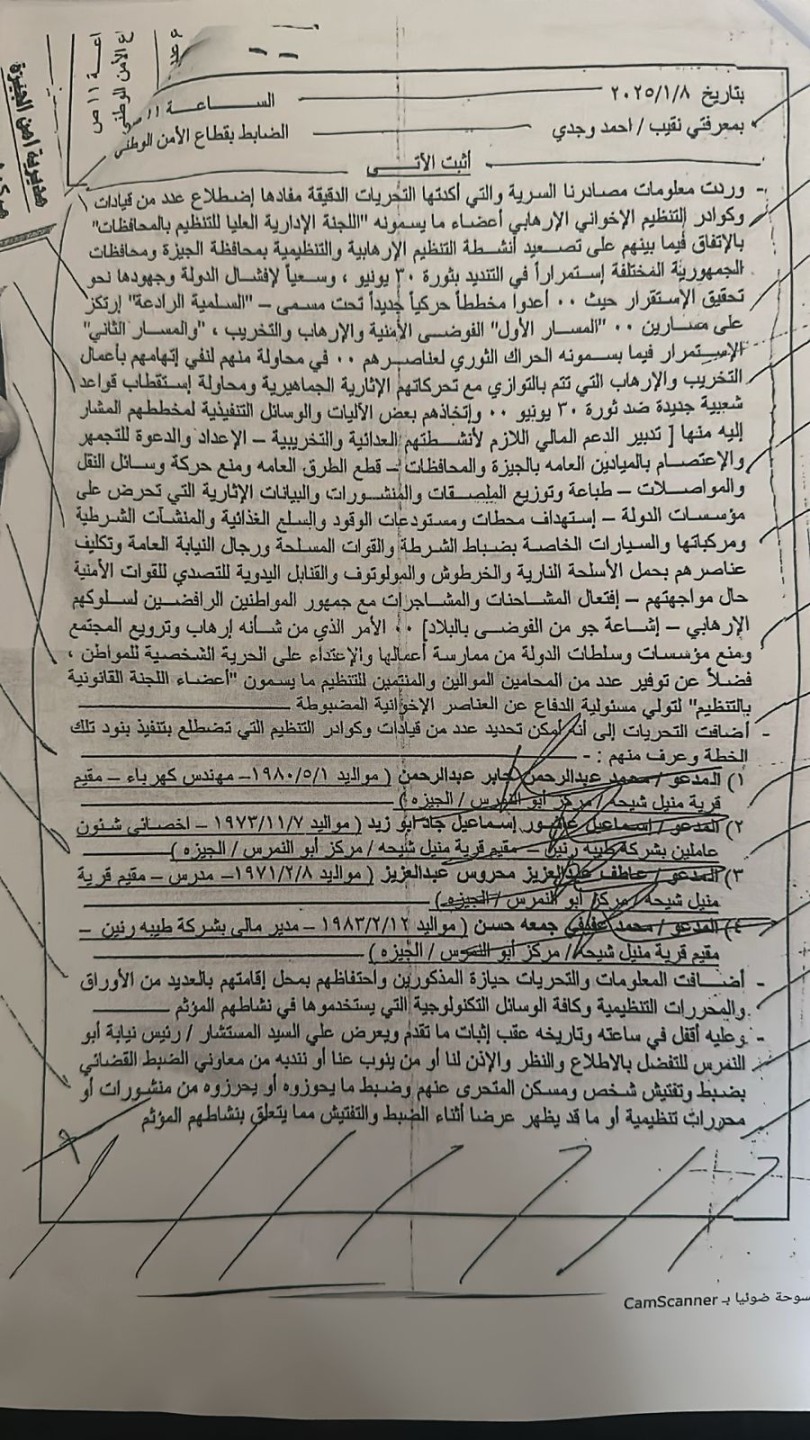 ع عدد
ع الأمن الوطني
اعة ١١ ص
مديرية أمن الجيزة
بتاريخ ٢٠٢٥/١/٨ الساعة ١١ ص
بمعرفتي نقيب / احمد وجدي الضابط بقطاع الأمن الوطني
أثبت الآتى
- وردت معلومات مصادرنا السرية والتي أكدتها التحريات الدقيقة مفادها إضطلاع عدد من قيادات
وكوادر التنظيم الإخواني الإرهابي أعضاء ما يسمونه "اللجنة الإدارية العليا للتنظيم بالمحافظات"
بالإتفاق فيما بينهم على تصعيد أنشطة التنظيم الإرهابية والتنظيمية بمحافظة الجيزة ومحافظات
الجمهورية المختلفة إستمراراً في التنديد بثورة ٣٠ يونيو ، وسعياً لإفشال الدولة وجهودها نحو
تحقيق الإستقرار حيث ٠٠ أعدوا مخططاً حركياً جديداً تحت مسمى – "السلمية الرادعة" إرتكز
على مسارين ٠٠ "المسار الأول" الفوضى الأمنية والإرهاب والتخريب ، "والمسار الثاني"
الإستمرار فيما يسمونه الحراك الثوري لعناصرهم ٠٠ في محاولة منهم لنفي إتهامهم بأعمال
التخريب والإرهاب التي تتم بالتوازي مع تحركاتهم الإثارية الجماهيرية ومحاولة إستقطاب قواعد
شعبية جديدة ضد ثورة ٣٠ يونيو ٠٠ وإتخاذهم بعض الآليات والوسائل التنفيذية لمخططهم المشار
إليه منها [ تدبير الدعم المالي اللازم لأنشطتهم العدائية والتخريبية – الإعداد والدعوة للتجمهر
والإعتصام بالميادين العامه بالجيزة والمحافظات – قطع الطرق العامه ومنع حركة وسائل النقل
والمواصلات – طباعة وتوزيع الملصقات والمنشورات والبيانات الإثارية التي تحرض على
مؤسسات الدولة – إستهداف محطات ومستودعات الوقود والسلع الغذائية والمنشآت الشرطية
ومركباتها والسيارات الخاصة بضباط الشرطة والقوات المسلحة ورجال النيابة العامة وتكليف
عناصرهم بحمل الأسلحة النارية والخرطوش والمولوتوف والقنابل اليدوية للتصدي للقوات الأمنية
حال مواجهتهم – إفتعال المشاحنات والمشاجرات مع جمهور المواطنين الرافضين لسلوكهم
الإرهابي – إشاعة جو من الفوضى بالبلاد] ٠٠ الأمر الذي من شأنه إرهاب وترويع المجتمع
ومنع مؤسسات وسلطات الدولة من ممارسة أعمالها والإعتداء على الحرية الشخصية للمواطن ،
فضلاً عن توفير عدد من المحامين الموالين والمنتمين للتنظيم ما يسمون "أعضاء اللجنة القانونية
بالتنظيم" لتولي مسئولية الدفاع عن العناصر الإخوانية المضبوطة
- أضافت التحريات إلى أنه أمكن تحديد عدد من قيادات وكوادر التنظيم التي تضطلع بتنفيذ بنود تلك
الخطة وعرف منهم : -
١) المدعو / محمد عبدالرحمن جابر عبدالرحمن ( مواليد ١٩٨٠/٥/١– مهندس كهرباء – مقيم
قرية منيل شيحه / مركز أبو النمرس / الجيزه )
٢) المدعو / إسماعيل عاشور إسماعيل جاد ابو زيد ( مواليد ١٩٧٣/١١/٧ – اخصائي شئون
عاملين بشركة طيبه رنين – مقيم قرية منيل شيحه / مركز أبو النمرس / الجيزه )
٣) المدعو / عاطف عبدالعزيز محروس عبدالعزيز ( مواليد ١٩٧١/٢/٨– مدرس – مقيم قرية
منيل شيحه / مركز أبو النمرس / الجيزه )
٤) المدعو / محمد عفيفي جمعه حسن ( مواليد ١٩٨٣/٢/١٢ – مدير مالى بشركة طيبه رنين –
مقيم قرية منيل شيحه / مركز أبو النمرس / الجيزه )
- أضافت المعلومات والتحريات حيازة المذكورين واحتفاظهم بمحل إقامتهم بالعديد من الأوراق
والمحررات التنظيمية وكافة الوسائل التكنولوجية التي يستخدموها في نشاطهم المؤثم
- وعليه أقفل في ساعته وتاريخه عقب إثبات ما تقدم ويعرض علي السيد المستشار / رئيس نيابة أبو
النمرس للتفضل بالاطلاع والنظر والإذن لنا أو من ينوب عنا أو نندبه من معاوني الضبط القضائي
بضبط وتفتيش شخص ومسكن المتحرى عنهم وضبط ما يحوزوه أو يحرزوه من منشورات أو
محررات تنظيمية أو ما قد يظهر عرضا أثناء الضبط والتفتيش مما يتعلق بنشاطهم المؤثم
سوحة ضوئيا بـ CamScanner